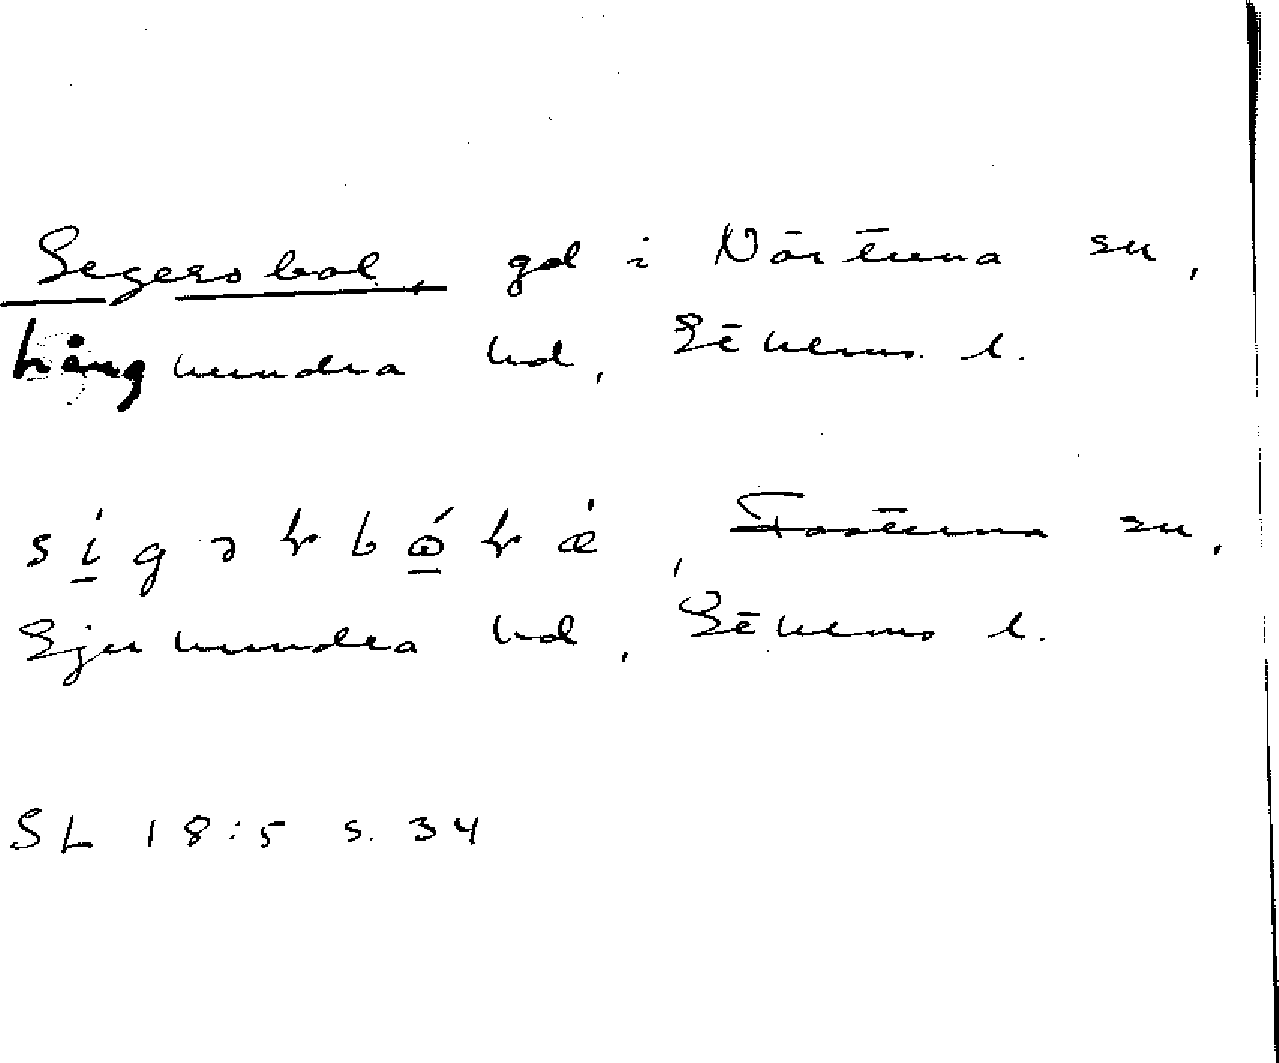 Segersbol, gd i Närtuna sn,
Långhundra hd, Sthlms l.
sigərbɷræ, Fasterna sn,
Sjuhundra hd, Sthlms l.
SL 18:5 s. 34